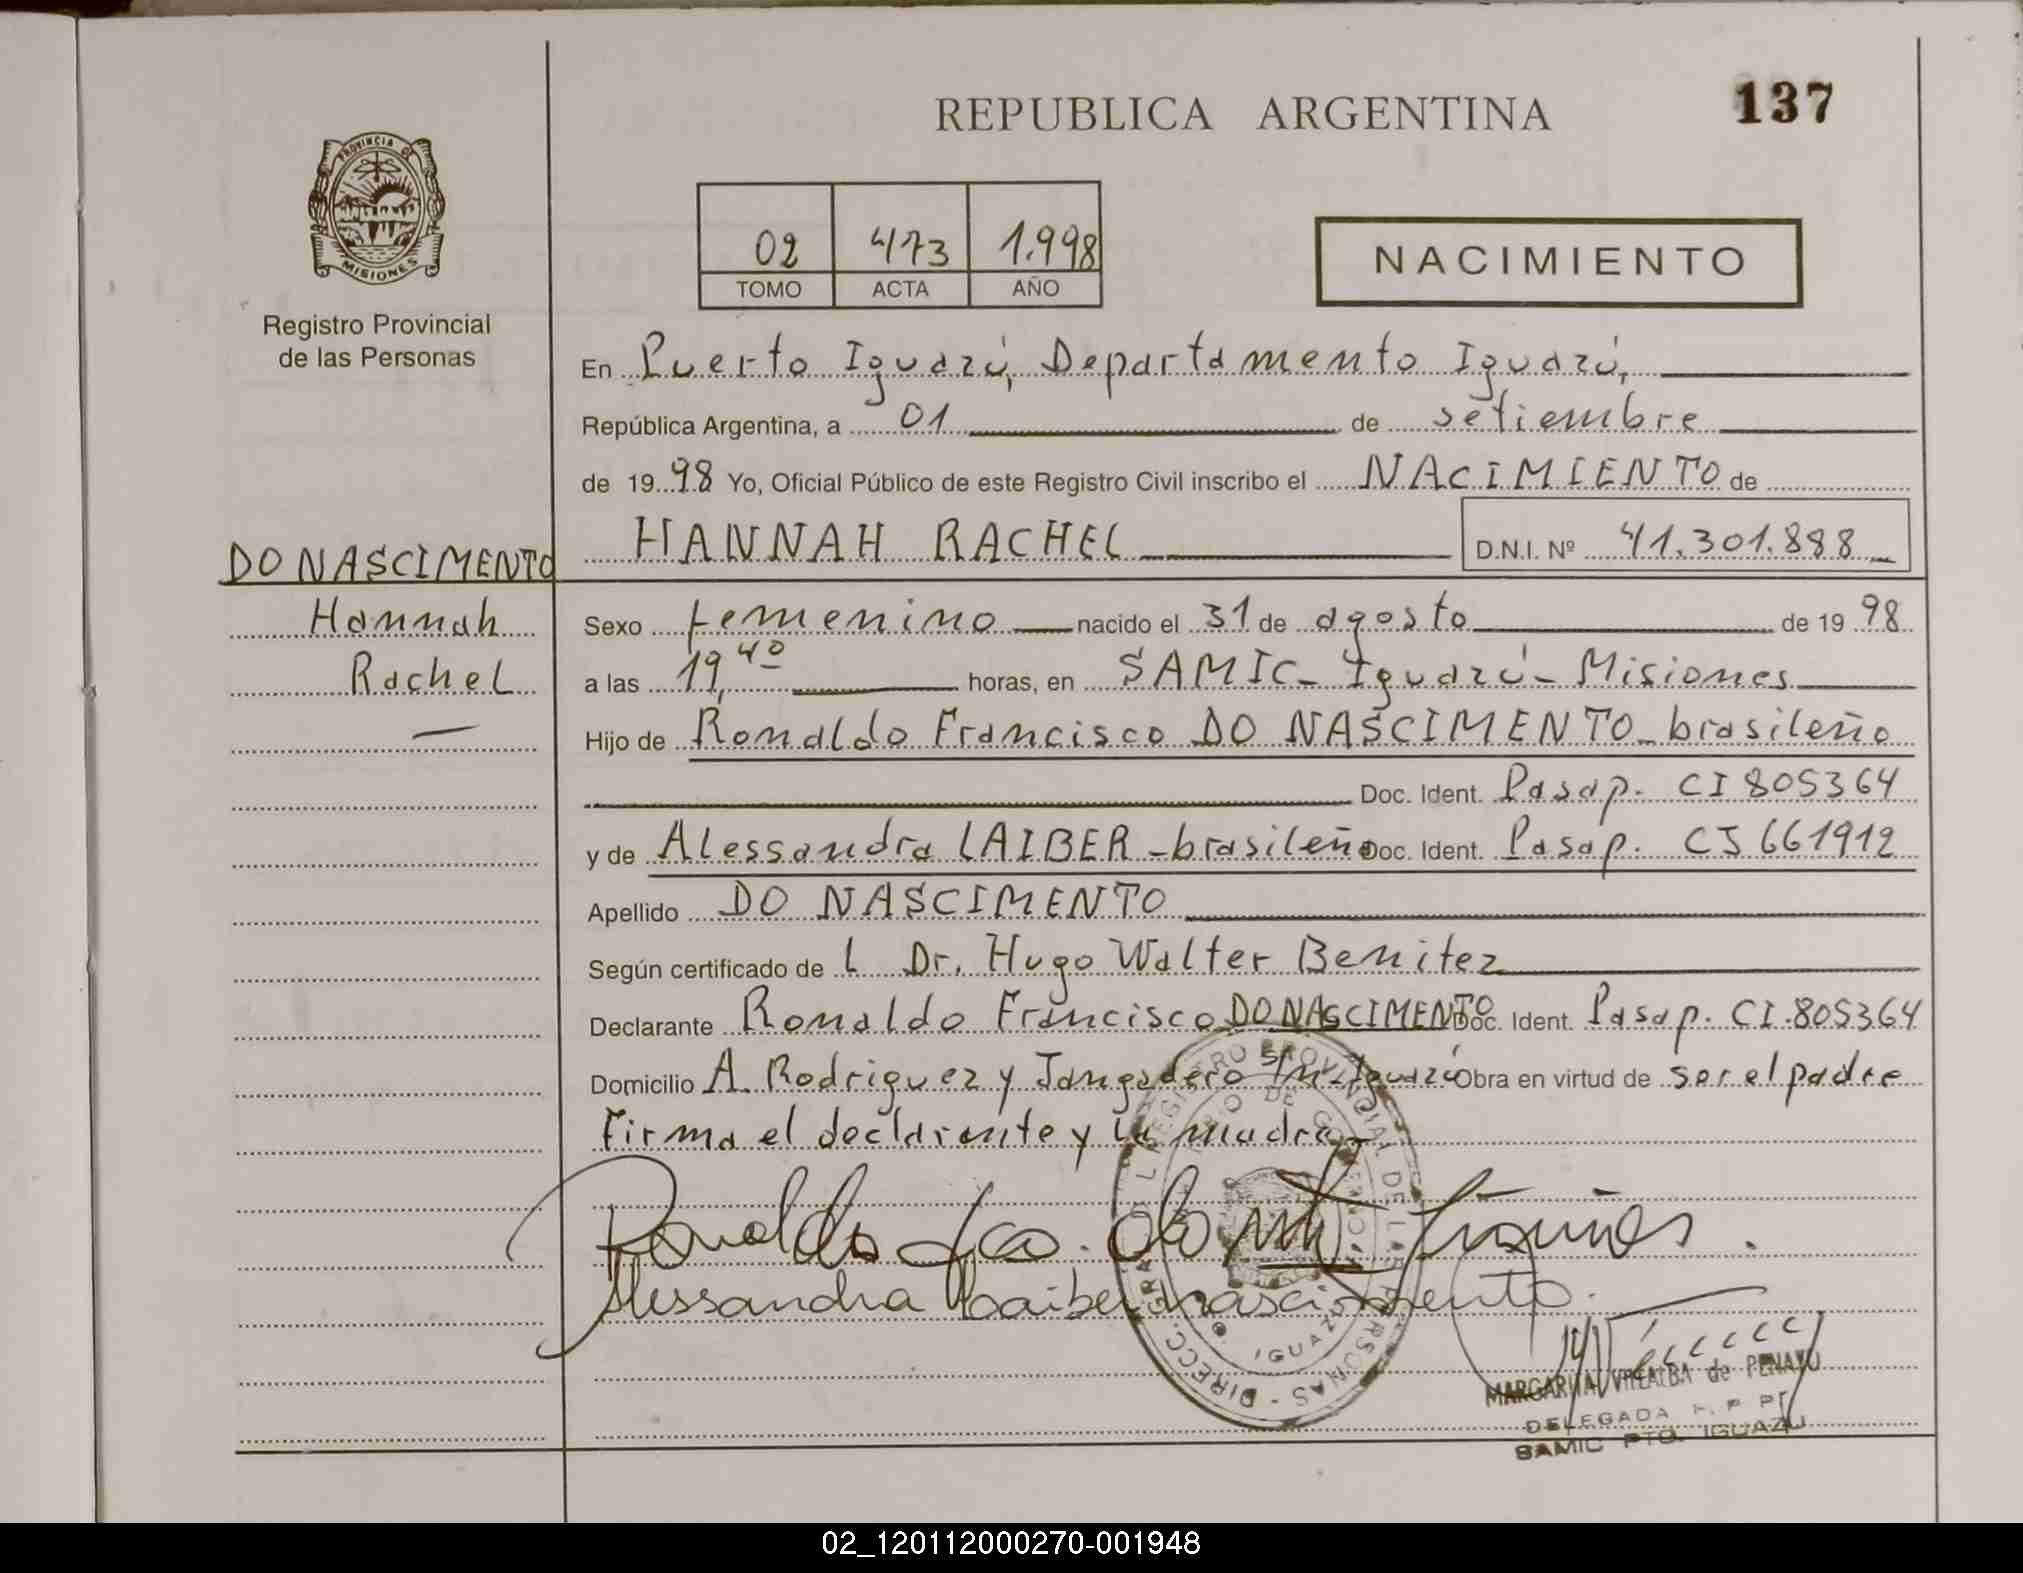 REPUBLICA ARGENTINA
137
PROVINCIA DE
MISIONES
Registro Provincial
de las Personas
02 473 1.998
TOMO ACTA AÑO
NACIMIENTO
En Puerto Iguazú, Departamento Iguazú,
República Argentina, a 01 de setiembre
de 1998 Yo, Oficial Público de este Registro Civil inscribo el NACIMIENTO de
HANNAH RACHEL D.N.I. Nº 41.301.888
DO NASCIMENTO
Hannah
Rachel
Sexo femenino nacido el 31 de agosto de 1998
a las 19,40 horas, en SAMIC - Iguazú - Misiones
Hijo de Ronaldo Francisco DO NASCIMENTO - brasileño
Doc. Ident. Pasap. CI 805364
y de Alessandra LAIBER - brasileña Doc. Ident. Pasap. CJ 661912
Apellido DO NASCIMENTO
Según certificado de l Dr. Hugo Walter Benitez
Declarante Ronaldo Francisco DO NASCIMENTO Doc. Ident. Pasap. CI.805364
Domicilio A. Rodriguez y Jangadero S/N - Iguazú Obra en virtud de ser el padre
Firma el declarante y la madre
Ronaldo Fco. do
Alessandra Laiber nascimento.
DIRECC. GRAL REGISTRO PROVINCIAL DE LAS PERSONAS
IGUAZU
MARGARITA VILLALBA de PENAYO
DELEGADA
SAMIC PTO. IGUAZU
02_120112000270-001948